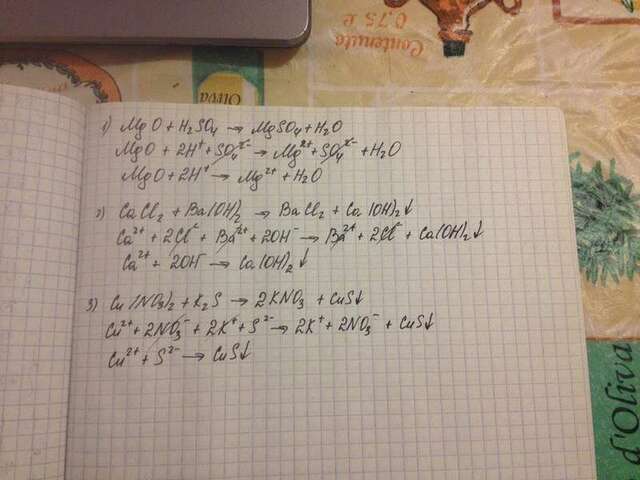 Contenuto
0,75 l
Oliva
1) MgO + H₂SO₄ → MgSO₄ + H₂O
MgO + 2H⁺ + SO₄²⁻ → Mg²⁺ + SO₄²⁻ + H₂O
MgO + 2H⁺ → Mg²⁺ + H₂O
2) CaCl₂ + Ba(OH)₂ → BaCl₂ + Ca(OH)₂↓
Ca²⁺ + 2Cl⁻ + Ba²⁺ + 2OH⁻ → Ba²⁺ + 2Cl⁻ + Ca(OH)₂↓
Ca²⁺ + 2OH⁻ → Ca(OH)₂↓
3) Cu(NO₃)₂ + K₂S → 2KNO₃ + CuS↓
Cu²⁺ + 2NO₃⁻ + 2K⁺ + S²⁻ → 2K⁺ + 2NO₃⁻ + CuS↓
Cu²⁺ + S²⁻ → CuS↓
d'Oliva